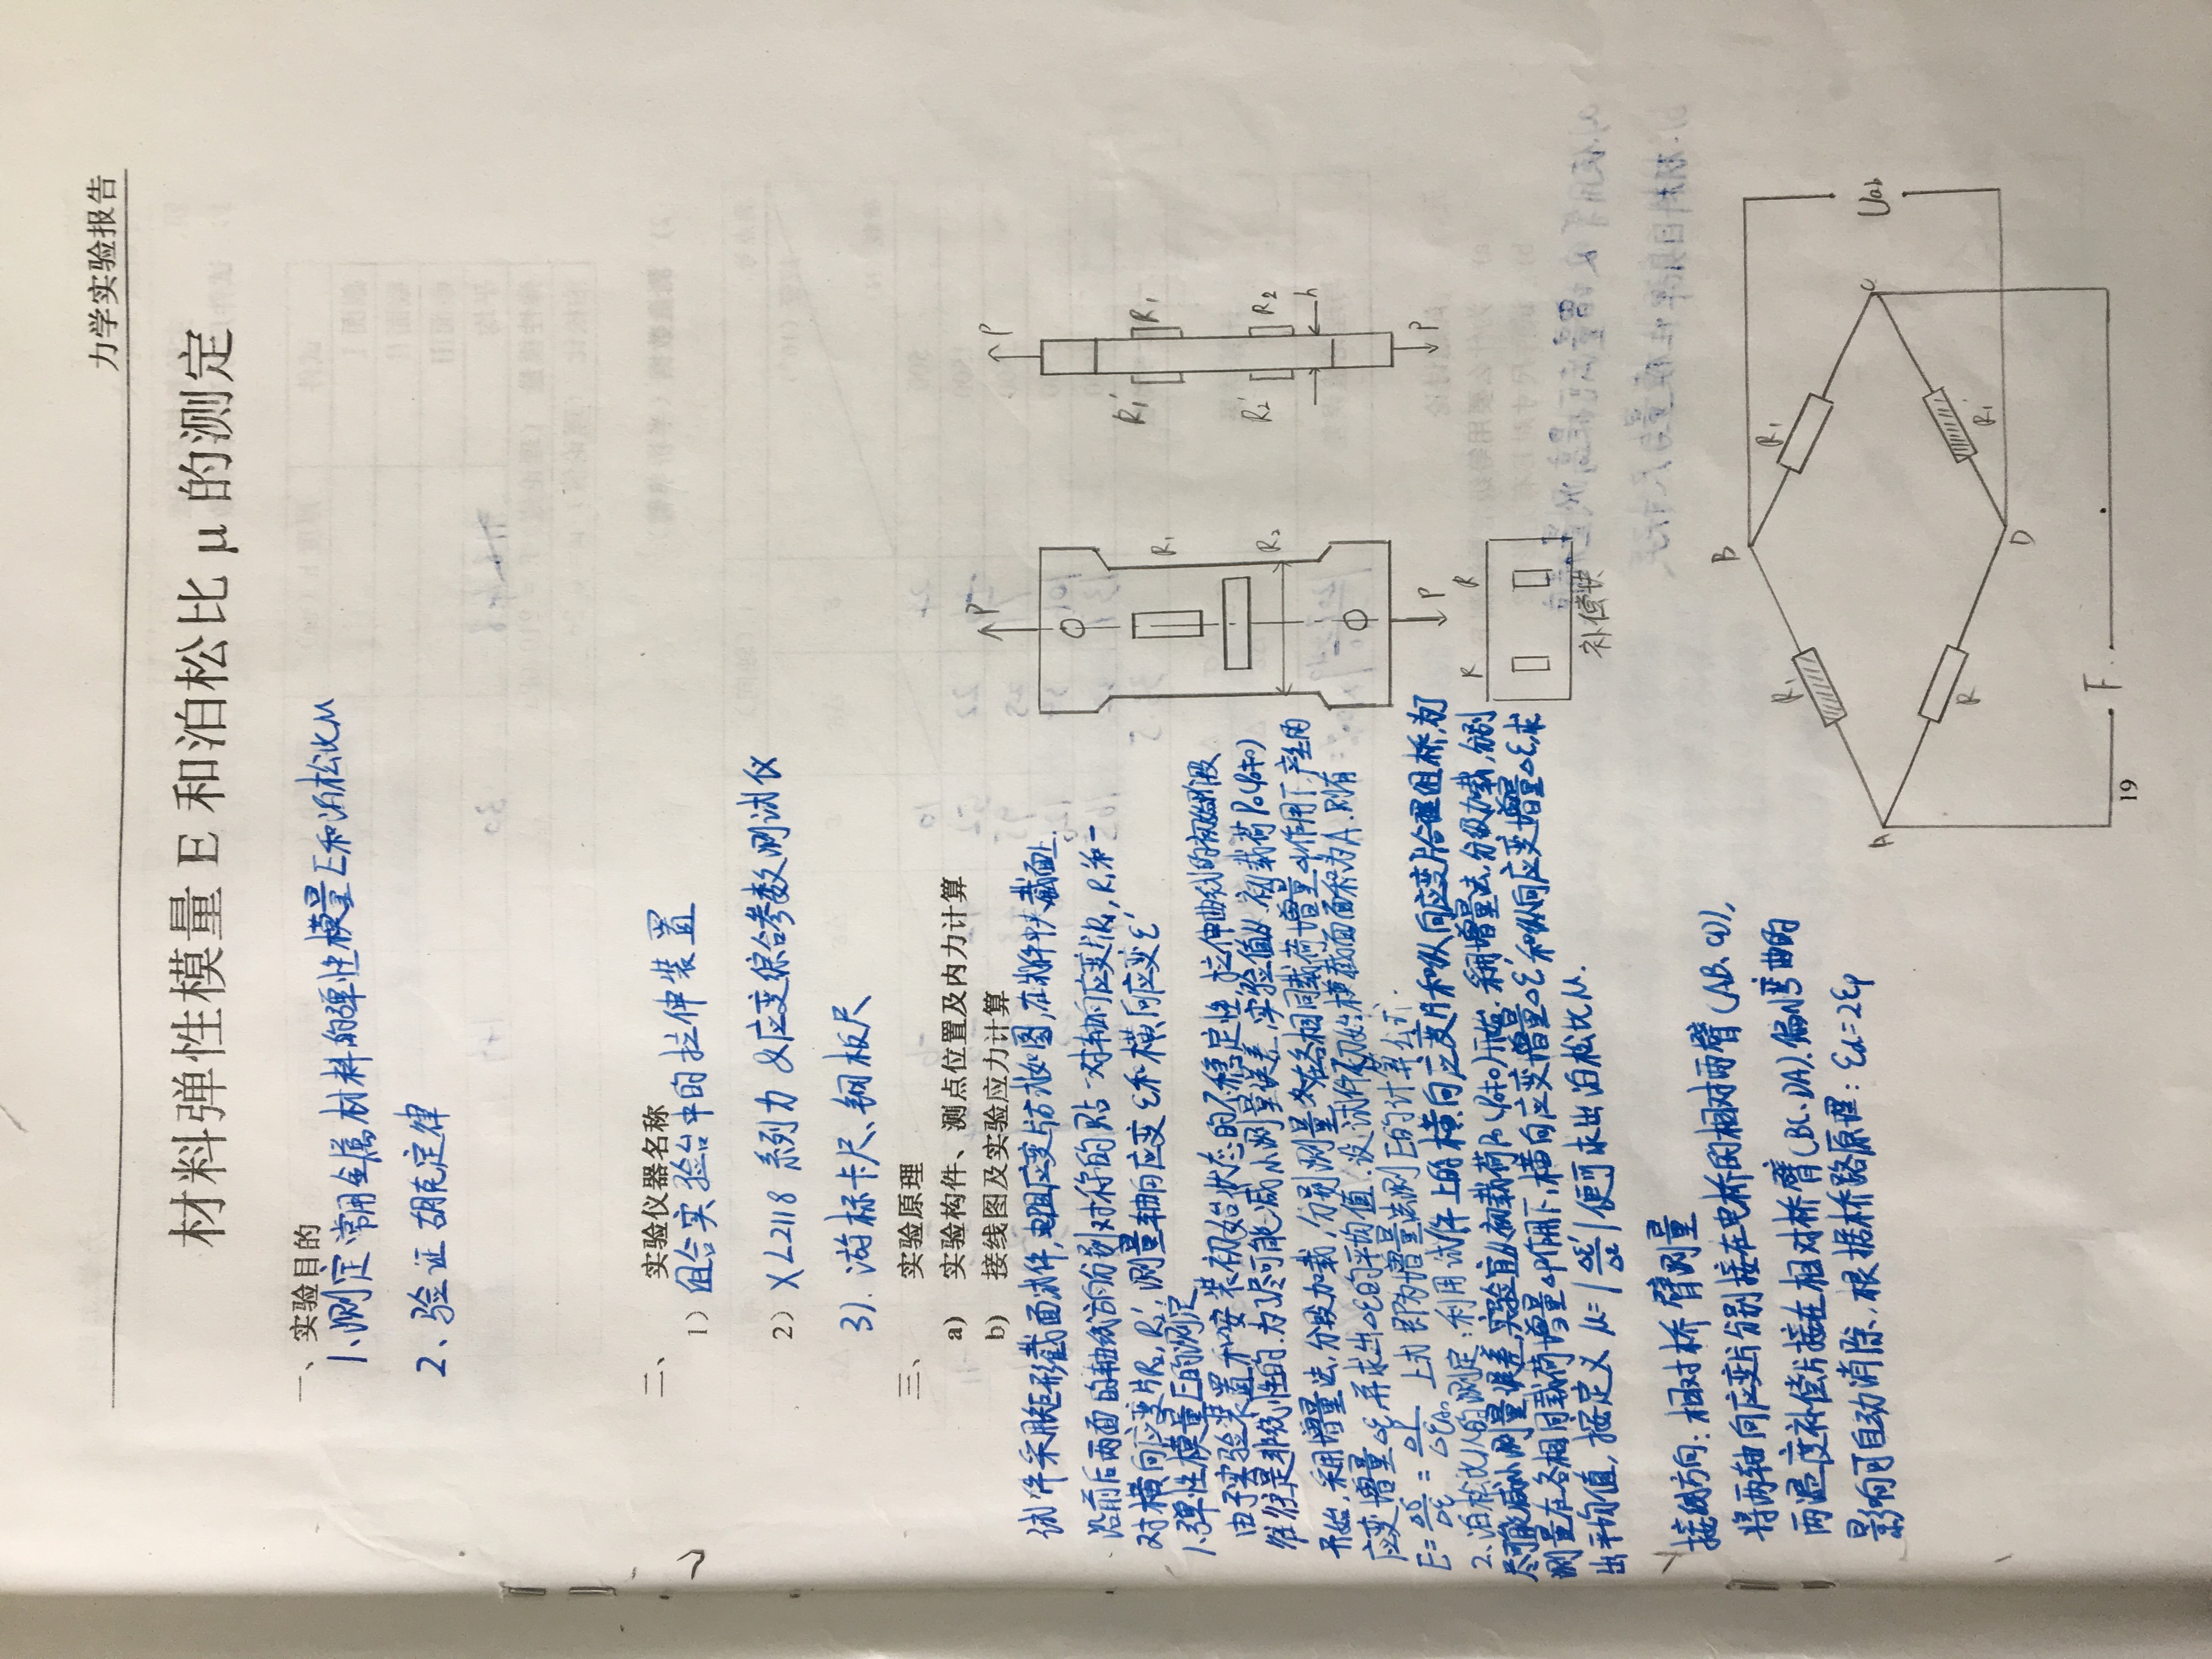 力学实验报告
材料弹性模量 E 和泊松比 μ 的测定
一、实验目的
1、测定常用金属材料的弹性模量E和泊松比μ
2、验证胡克定律
二、 实验仪器名称
1）组合实验台中的拉伸装置
2）XL2118 系列力 &应变综合参数测试仪
3). 游标卡尺、钢板尺
三、 实验原理
a) 实验构件、测点位置及内力计算
b) 接线图及实验应力计算
试件采用矩形截面试件,电阻应变片方式如图,在试件中央截面上.
沿前后两面的轴线方向分别对称的贴一对轴向应变片R₁, R₁和一
对横向应变片R₂, R₂′, 测量轴向应变ε和横向应变ε′
1.弹性模量E的测定
由于实验装置和安装初始状态的不稳定性,拉伸曲线的初始阶段
往往是非线性的.为了尽可能减小测量误差,实验值从初载荷P₀(P₀≠0)
开始,采用增量法,分段加载,分别测量在各相同载荷增量ΔP作用下,产生的
应变增量Δε,并求出Δε的平均值.设试件初始横截面面积为A.则有
E=Δσ/Δε=ΔP/ΔεA₀ 上式即为增量法测E的计算公式.
2.泊松比μ的测定:利用试件上的横向应变片和纵向应变片合理组桥,为了
尽可能减小测量误差,实验宜从初载荷P₀(P₀≠0)开始.采用增量法,分级加载,分别
测量在各相同载荷增量ΔP作用下,横向应变增量Δε′和纵向应变增量Δε,求
出平均值,按定义 μ=|Δε′/Δε|便可求出泊松比μ.
接线方向:相对桥臂测量
将两轴向应变片分别接在电桥的相对两臂(AB、CD),
两温度补偿片接在相对桥臂(BC、DA).偏心弯曲的
影响可自动消除,根据桥路原理: εd=2εp
P
R₁
R₂
P
P
R₁′
R₁
R₂′
R₂
h
P
R
R
补偿块
B
R₁
R₁
A
C
Uab
R
R₁′
D
F
19